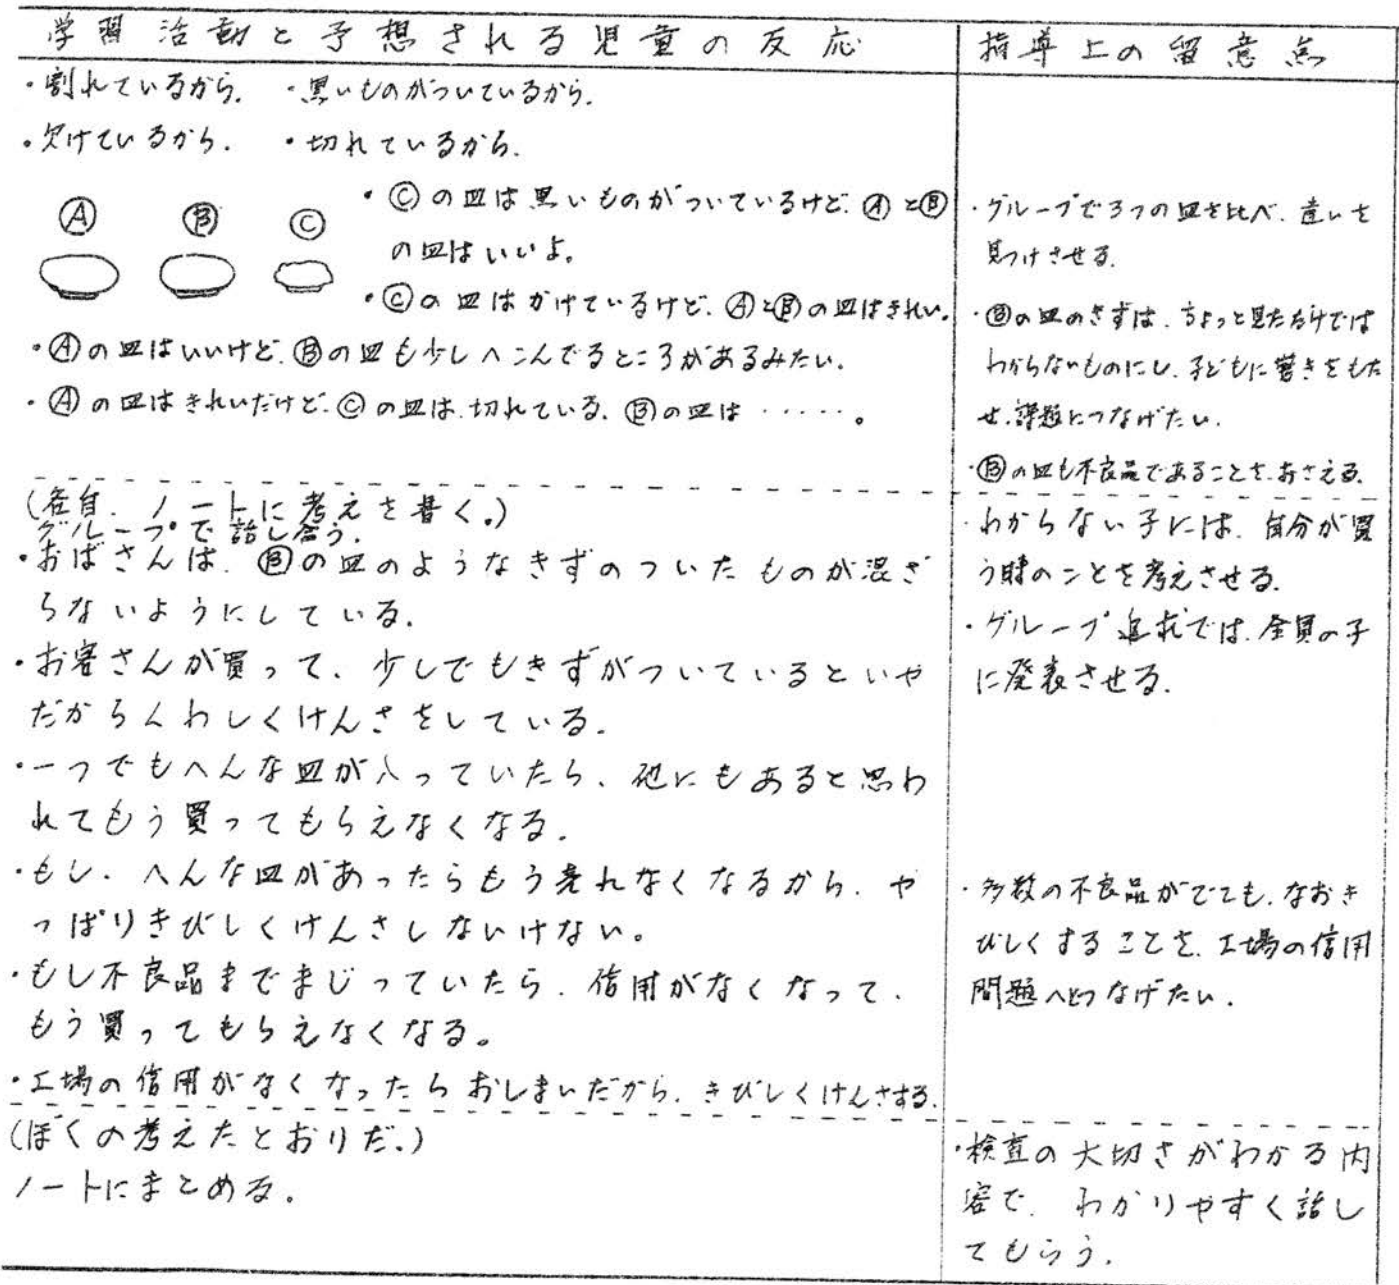 学習活動と予想される児童の反応
・割れているから。 ・黒いものがついているから。
・欠けているから。 ・切れているから。
Ⓐ Ⓑ Ⓒ
・Ⓒの皿は黒いものがついているけど、ⒶとⒷ
の皿はいいよ。
・Ⓒの皿はかけているけど、ⒶとⒷの皿はきれい。
・Ⓐの皿はいいけど、Ⓑの皿も少しへこんでるところがあるみたい。
・Ⓐの皿はきれいだけど、Ⓒの皿は、切れている。Ⓑの皿は……。
(各自、ノートに考えを書く。)
グループで話し合う。
・おばさんは、Ⓑの皿のようなきずのついたものが混ざ
らないようにしている。
・お客さんが買って、少しでもきずがついているといや
だからくわしくけんさをしている。
・一つでもへんな皿が入っていたら、他にもあると思わ
れてもう買ってもらえなくなる。
・もし、へんな皿があったらもう売れなくなるから、や
っぱりきびしくけんさしないけない。
・もし不良品までまじっていたら、信用がなくなって、
もう買ってもらえなくなる。
・工場の信用がなくなったらおしまいだから、きびしくけんさする。
(ぼくの考えたとおりだ。)
ノートにまとめる。
指導上の留意点
・グループで3つの皿を比べ、違いを
見つけさせる。
・Ⓑの皿のきずは、ちょっと見ただけでは
わからないものにし、子どもに驚きをもた
せ、課題につなげたい。
・Ⓑの皿も不良品であることを、おさえる。
・わからない子には、自分が買
う時のことを考えさせる。
・グループ追求では、全員の子
に発表させる。
・多数の不良品がでても、なおき
びしくすることを、工場の信用
問題へとつなげたい。
・検査の大切さがわかる内
容で、わかりやすく話し
てもらう。